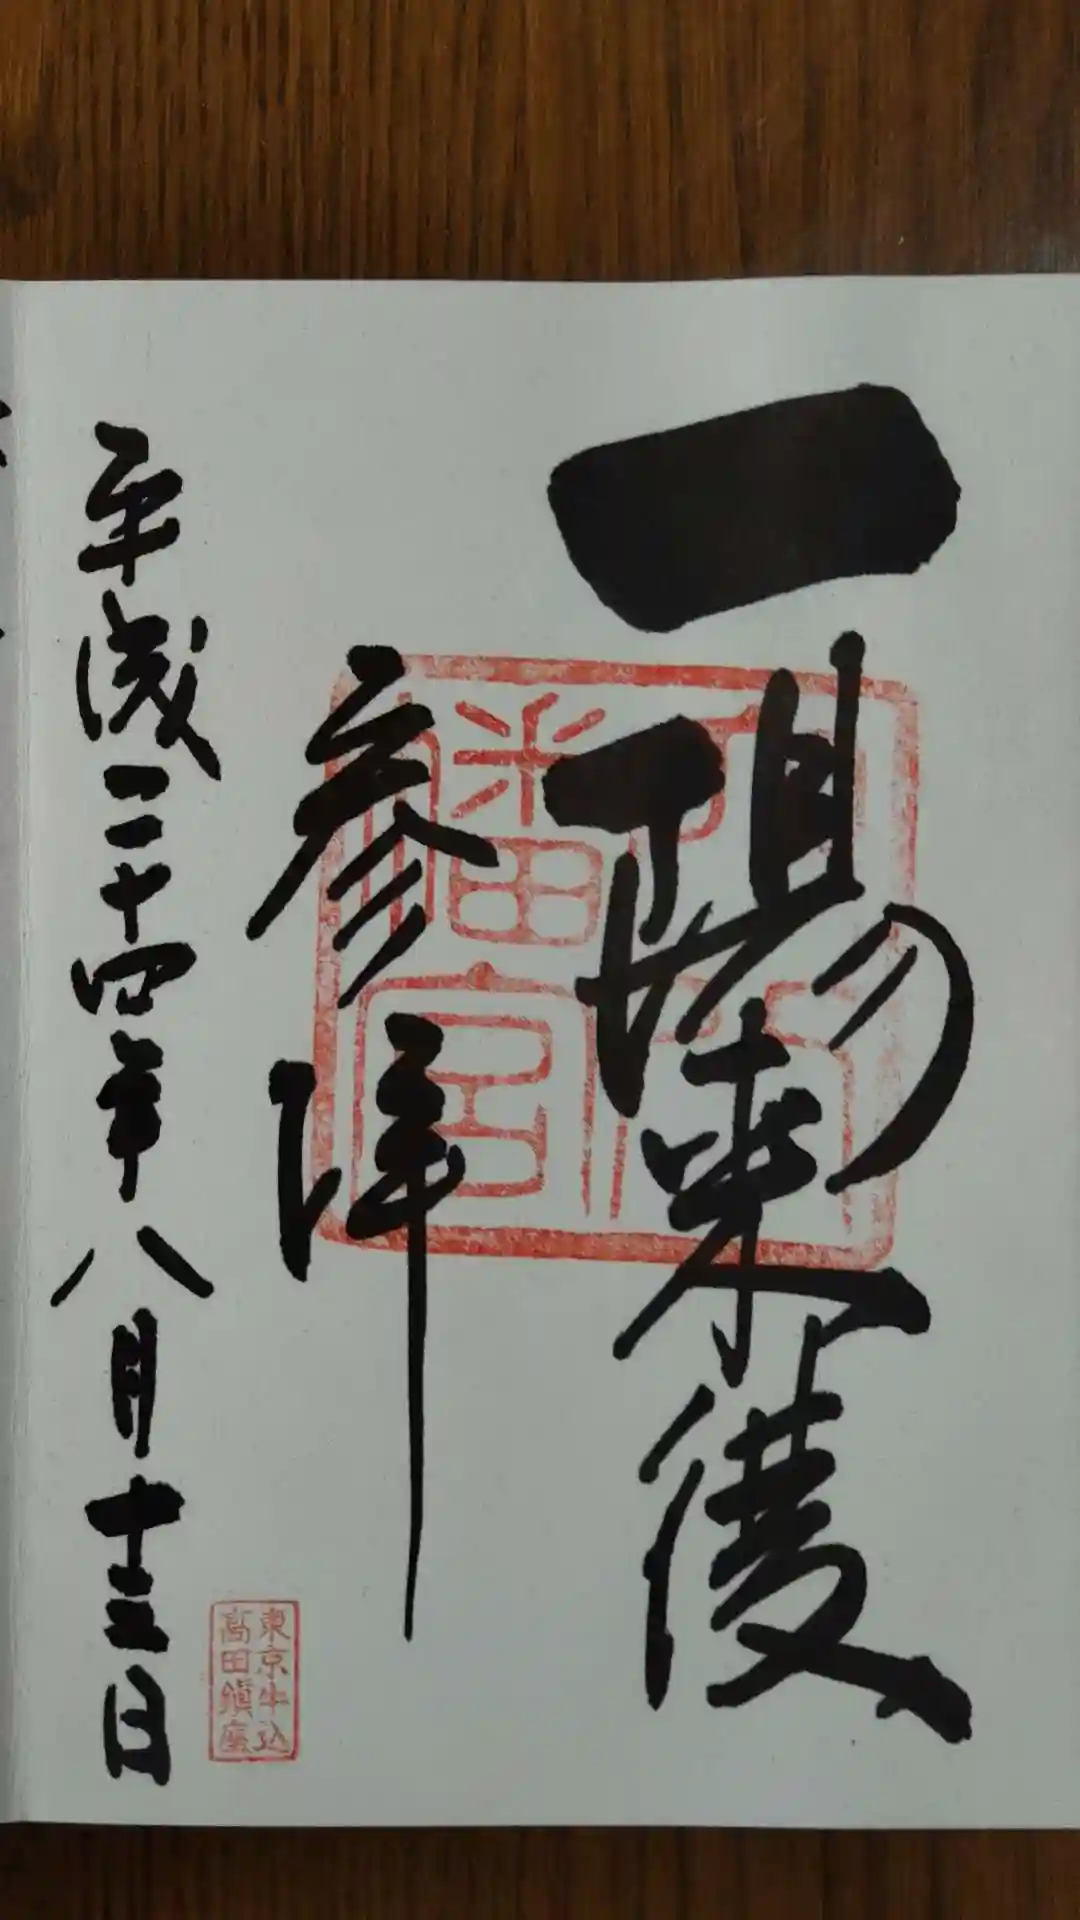 一陽来復
参拝
平成二十四年八月十三日
八幡宮
東京牛込
高田鎮座